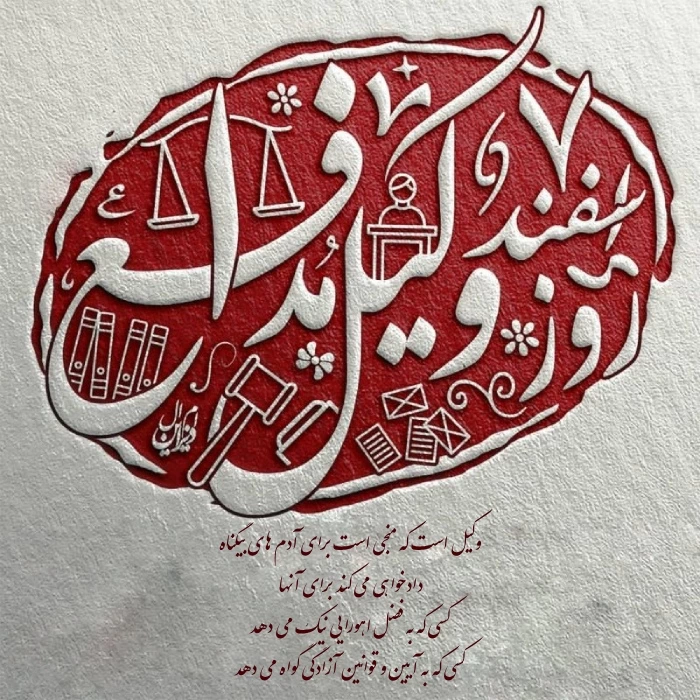 ۷ اسفند
روز وکیل مدافع
وکیل است که منجی است برای آدم های بیگناه
دادخواهی می کند برای آنها
کسی که به فضل اهورایی نیک می دهد
کسی که به آیین و قوانین آزادگی گواه می دهد